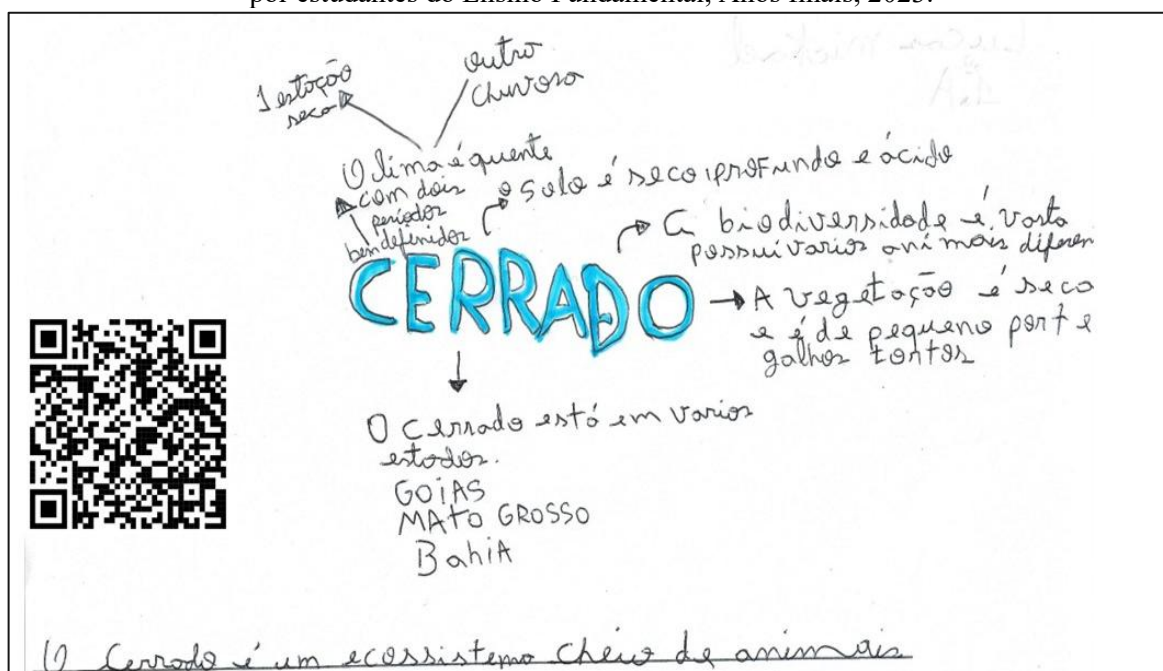 por estudantes do Ensino Fundamental, Anos finais, 2023.
1 estação
seca
outro
chuvoso
O lima é quente
com dois
periodos
bem definidos
o solo é seco, profundo e ácido
A biodiversidade é vasta
possui varios animais diferen
CERRADO
A vegetação é seca
e é de pequeno port e
galhos tortos
O cerrado está em varios
estados.
GOiAS
MATO GROSSO
BahiA
O Cerrado é um ecossistema cheio de animais